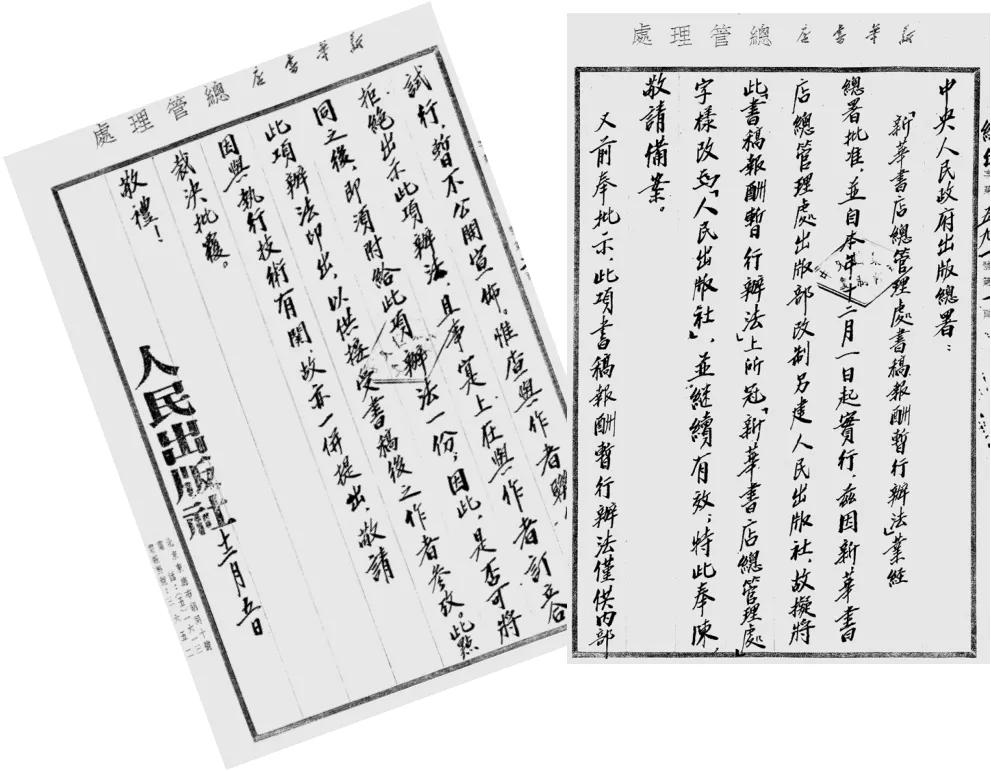 新華書店總管理處
中央人民政府出版總署：
「新華書店總管理處書稿報酬暫行辦法」業經
總署批准，並自本年十二月一日起實行，茲因新華書
店總管理處出版部改制另建人民出版社，故擬將
此「書稿報酬暫行辦法」上所冠「新華書店總管理處」
字樣改為「人民出版社」，並繼續有效；特此奉陳，
敬請備案。
又前奉批示，此項書稿報酬暫行辦法僅供內部
新華書店總管理處
試行，暫不公開宣佈。惟查與作者聯
拒絕出示此項辦法，且事实上在與作者訂立合
同之後，即須附給此項辦法一份；因此，是否可將
此項辦法印出，以供接受書稿後之作者參攷，此點
因與執行技術有関，故亦一併提出，敬請
裁決批覆。
敬禮！
人民出版社
十二月五日